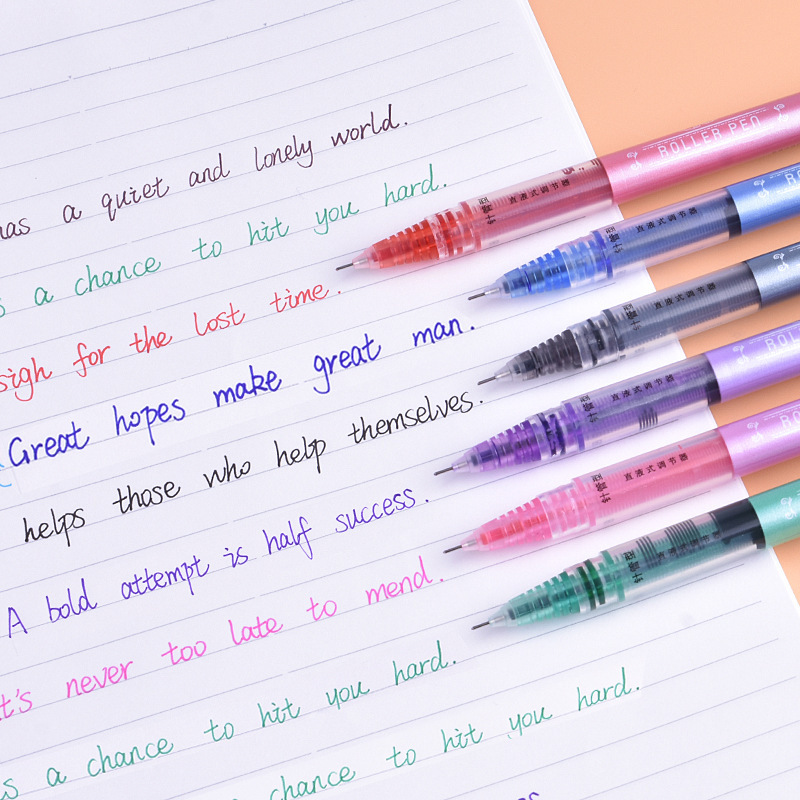 has a quiet and lonely world.
s a chance to hit you hard.
sigh for the lost time.
Great hopes make great man.
helps those who help themselves.
A bold attempt is half success.
t's never too late to mend.
s a chance to hit you hard.
chance to hit you hard.
ROLLER PEN
针管型 直液式调节器
RO
针管型 直液式调节器
针管型 直液式调节器
ROL
针管型 直液式调节器
RO
针管型 直液式调节器
针管型 直液式调节器